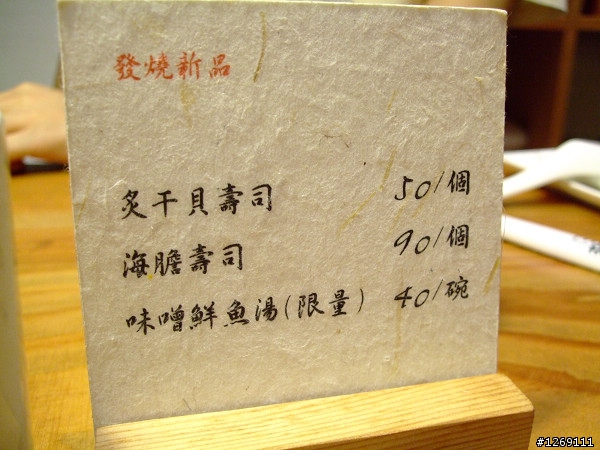 發燒新品
炙干貝壽司 50/個
海膽壽司 90/個
味噌鮮魚湯(限量) 40/碗
#1269111